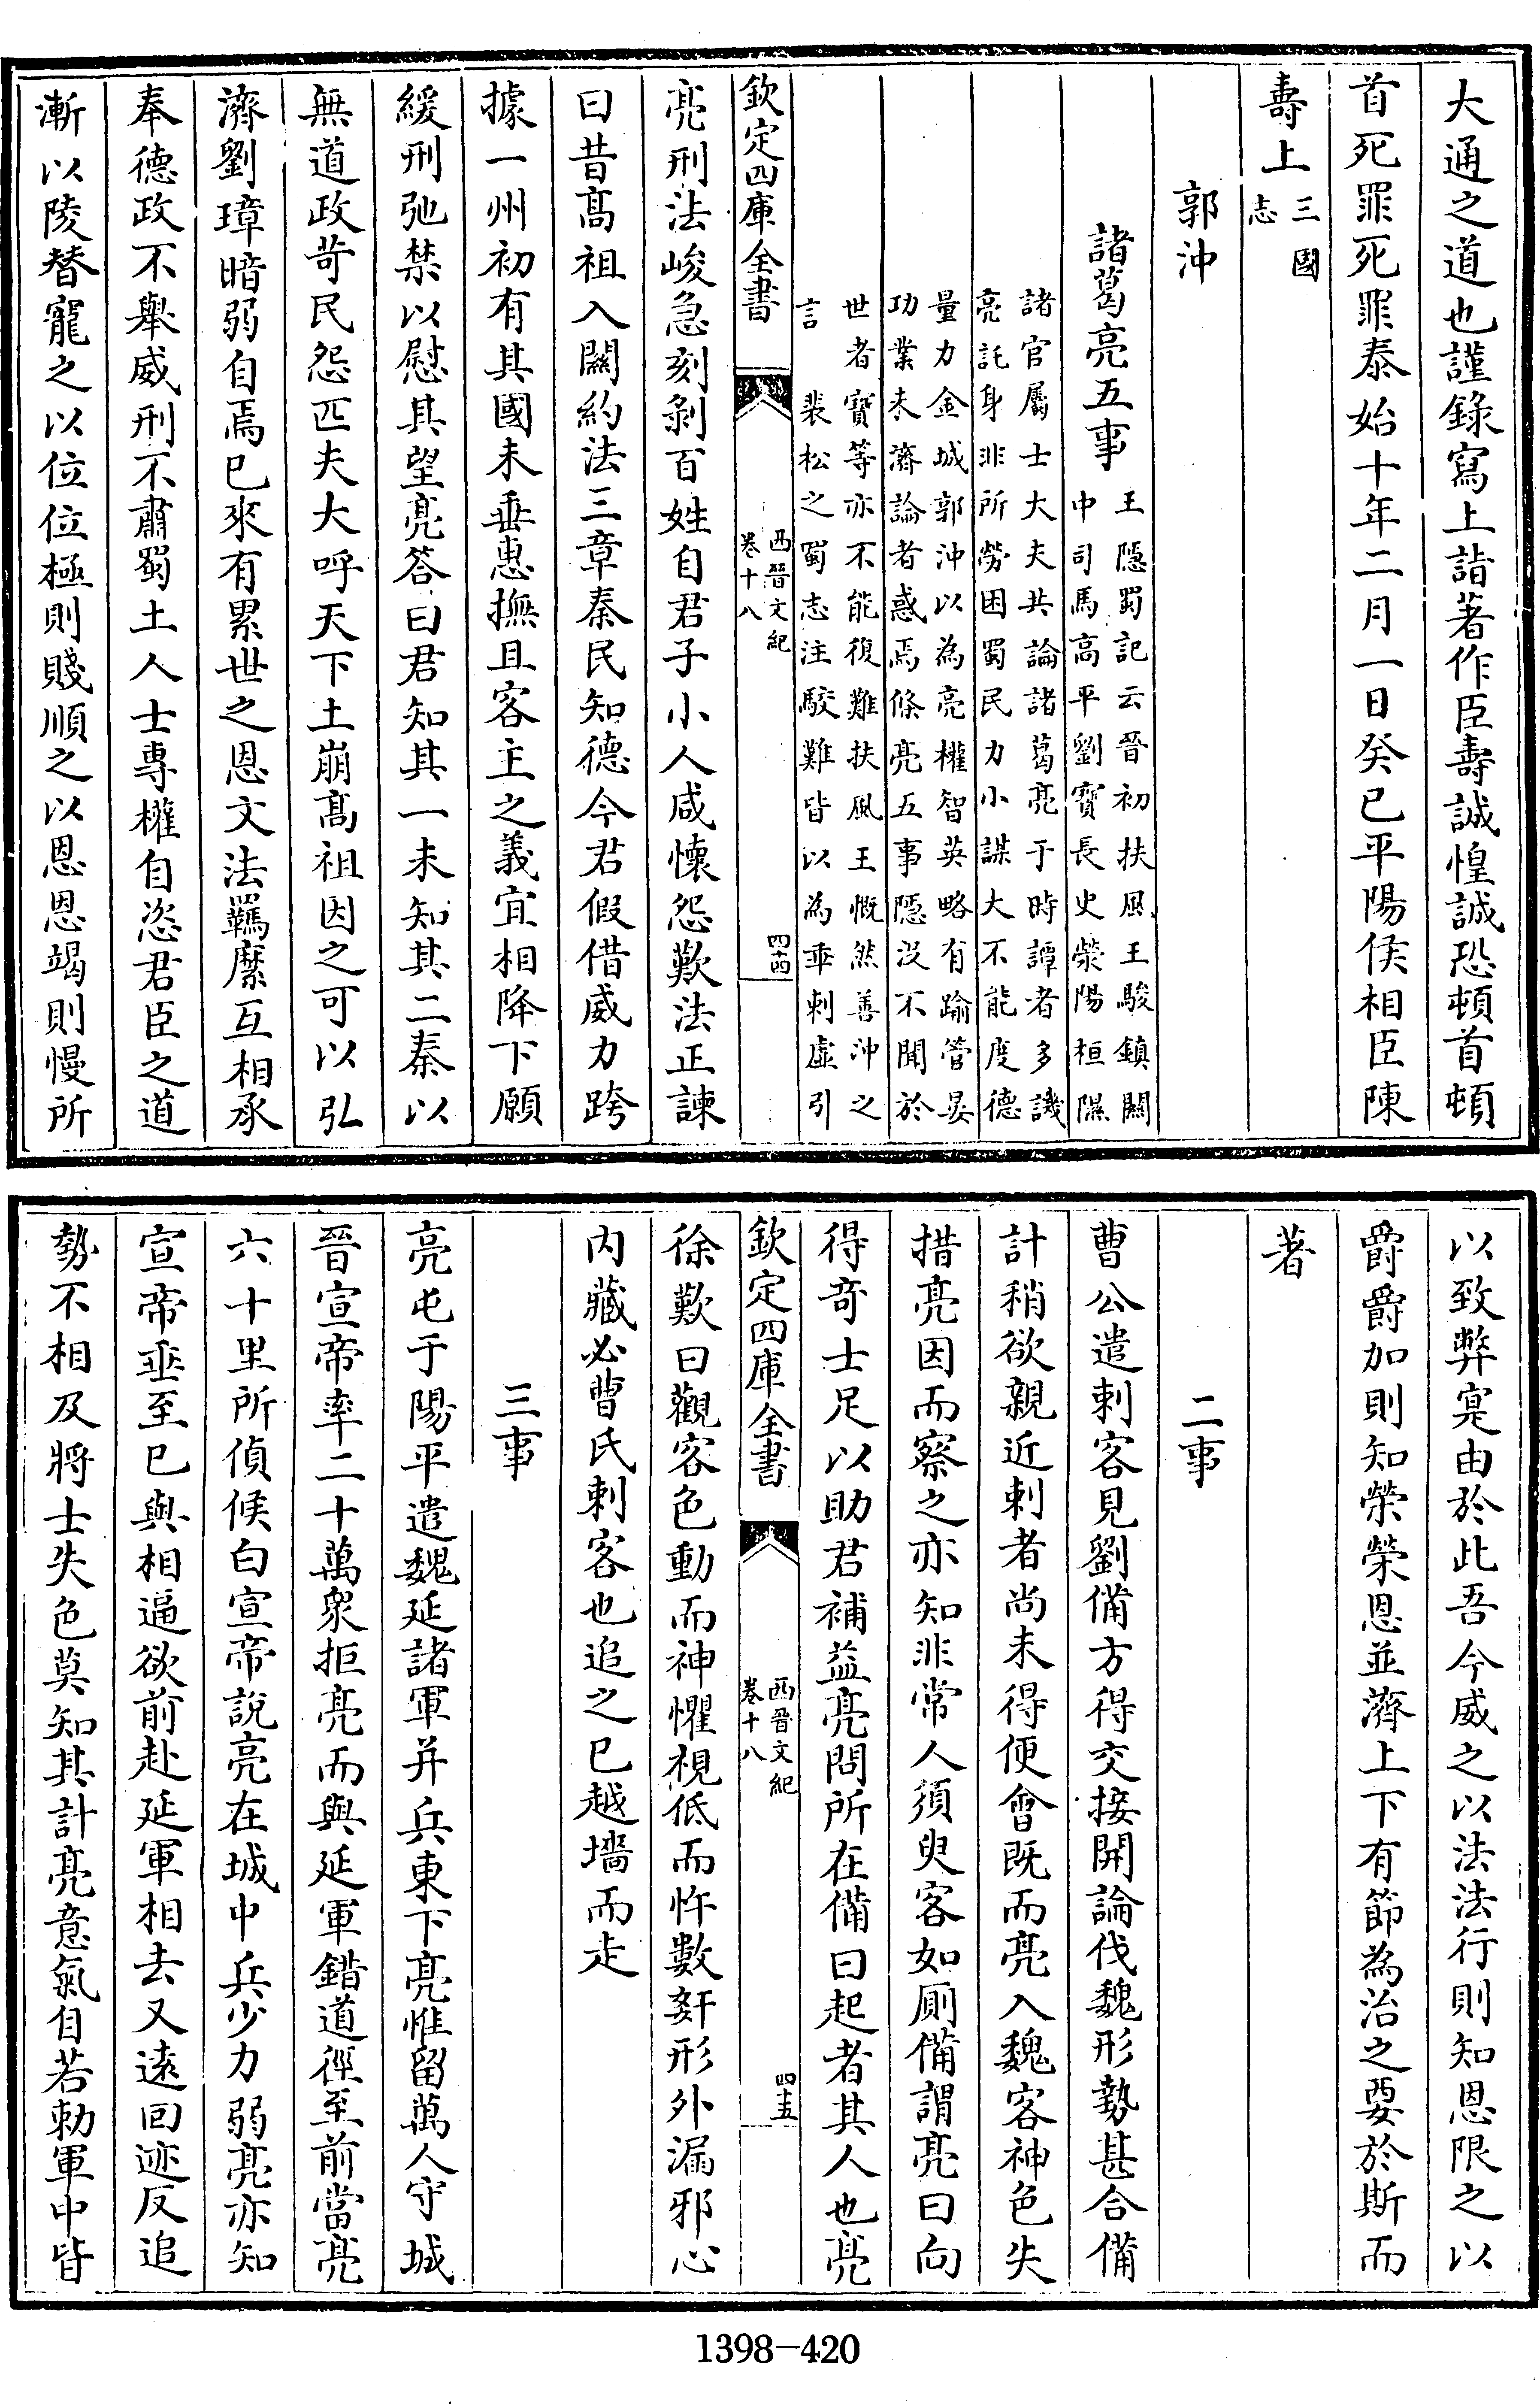 大通之道也謹錄寫上詣著作臣壽誠惶誠恐頓首頓
首死罪死罪泰始十年二月一日癸巳平陽侯相臣陳
壽上三國
志
郭沖
諸葛亮五事王隱蜀記云晉初扶風王駿鎮關
中司馬高平劉寶長史滎陽桓隰
諸官屬士大夫共論諸葛亮于時譚者多譏
亮託身非所勞困蜀民力小謀大不能度德
量力金城郭沖以為亮權智英略有踰管晏
功業未濟論者惑焉條亮五事隱没不聞於
世者寶等亦不能復難扶風王慨然善沖之
言 裴松之蜀志注駮難皆以為乖剌虛引
欽定四庫全書
西晉文紀
卷十八
四十四
亮刑法峻急刻剝百姓自君子小人咸懷怨歎法正諫
曰昔髙祖入關約法三章秦民知德今君假借威力跨
據一州初有其國未垂惠撫且客主之義宜相降下願
緩刑弛禁以慰其望亮答曰君知其一未知其二秦以
無道政苛民怨匹夫大呼天下土崩髙祖因之可以弘
濟劉璋暗弱自焉已來有累世之恩文法羈縻互相承
奉德政不舉威刑不肅蜀土人士專權自恣君臣之道
漸以陵替寵之以位位極則賤順之以恩恩竭則慢所
以致弊寔由於此吾今威之以法法行則知恩限之以
爵爵加則知榮榮恩並濟上下有節為治之要於斯而
著
二事
曹公遣刺客見劉備方得交接開論伐魏形勢甚合備
計稍欲親近刺者尚未得便會既而亮入魏客神色失
措亮因而察之亦知非常人須臾客如厠備謂亮曰向
得奇士足以助君補益亮問所在備曰起者其人也亮
欽定四庫全書
西晉文紀
卷十八
四十五
徐歎曰觀客色動而神懼視低而忤數姧形外漏邪心
内藏必曹氏刺客也追之已越墻而走
三事
亮屯于陽平遣魏延諸軍并兵東下亮惟留萬人守城
晉宣帝率二十萬衆拒亮而與延軍錯道徑至前當亮
六十里所偵候白宣帝說亮在城中兵少力弱亮亦知
宣帝垂至已與相逼欲前赴延軍相去又逺回迹反追
勢不相及將士失色莫知其計亮意氣自若勑軍中皆
1398-420